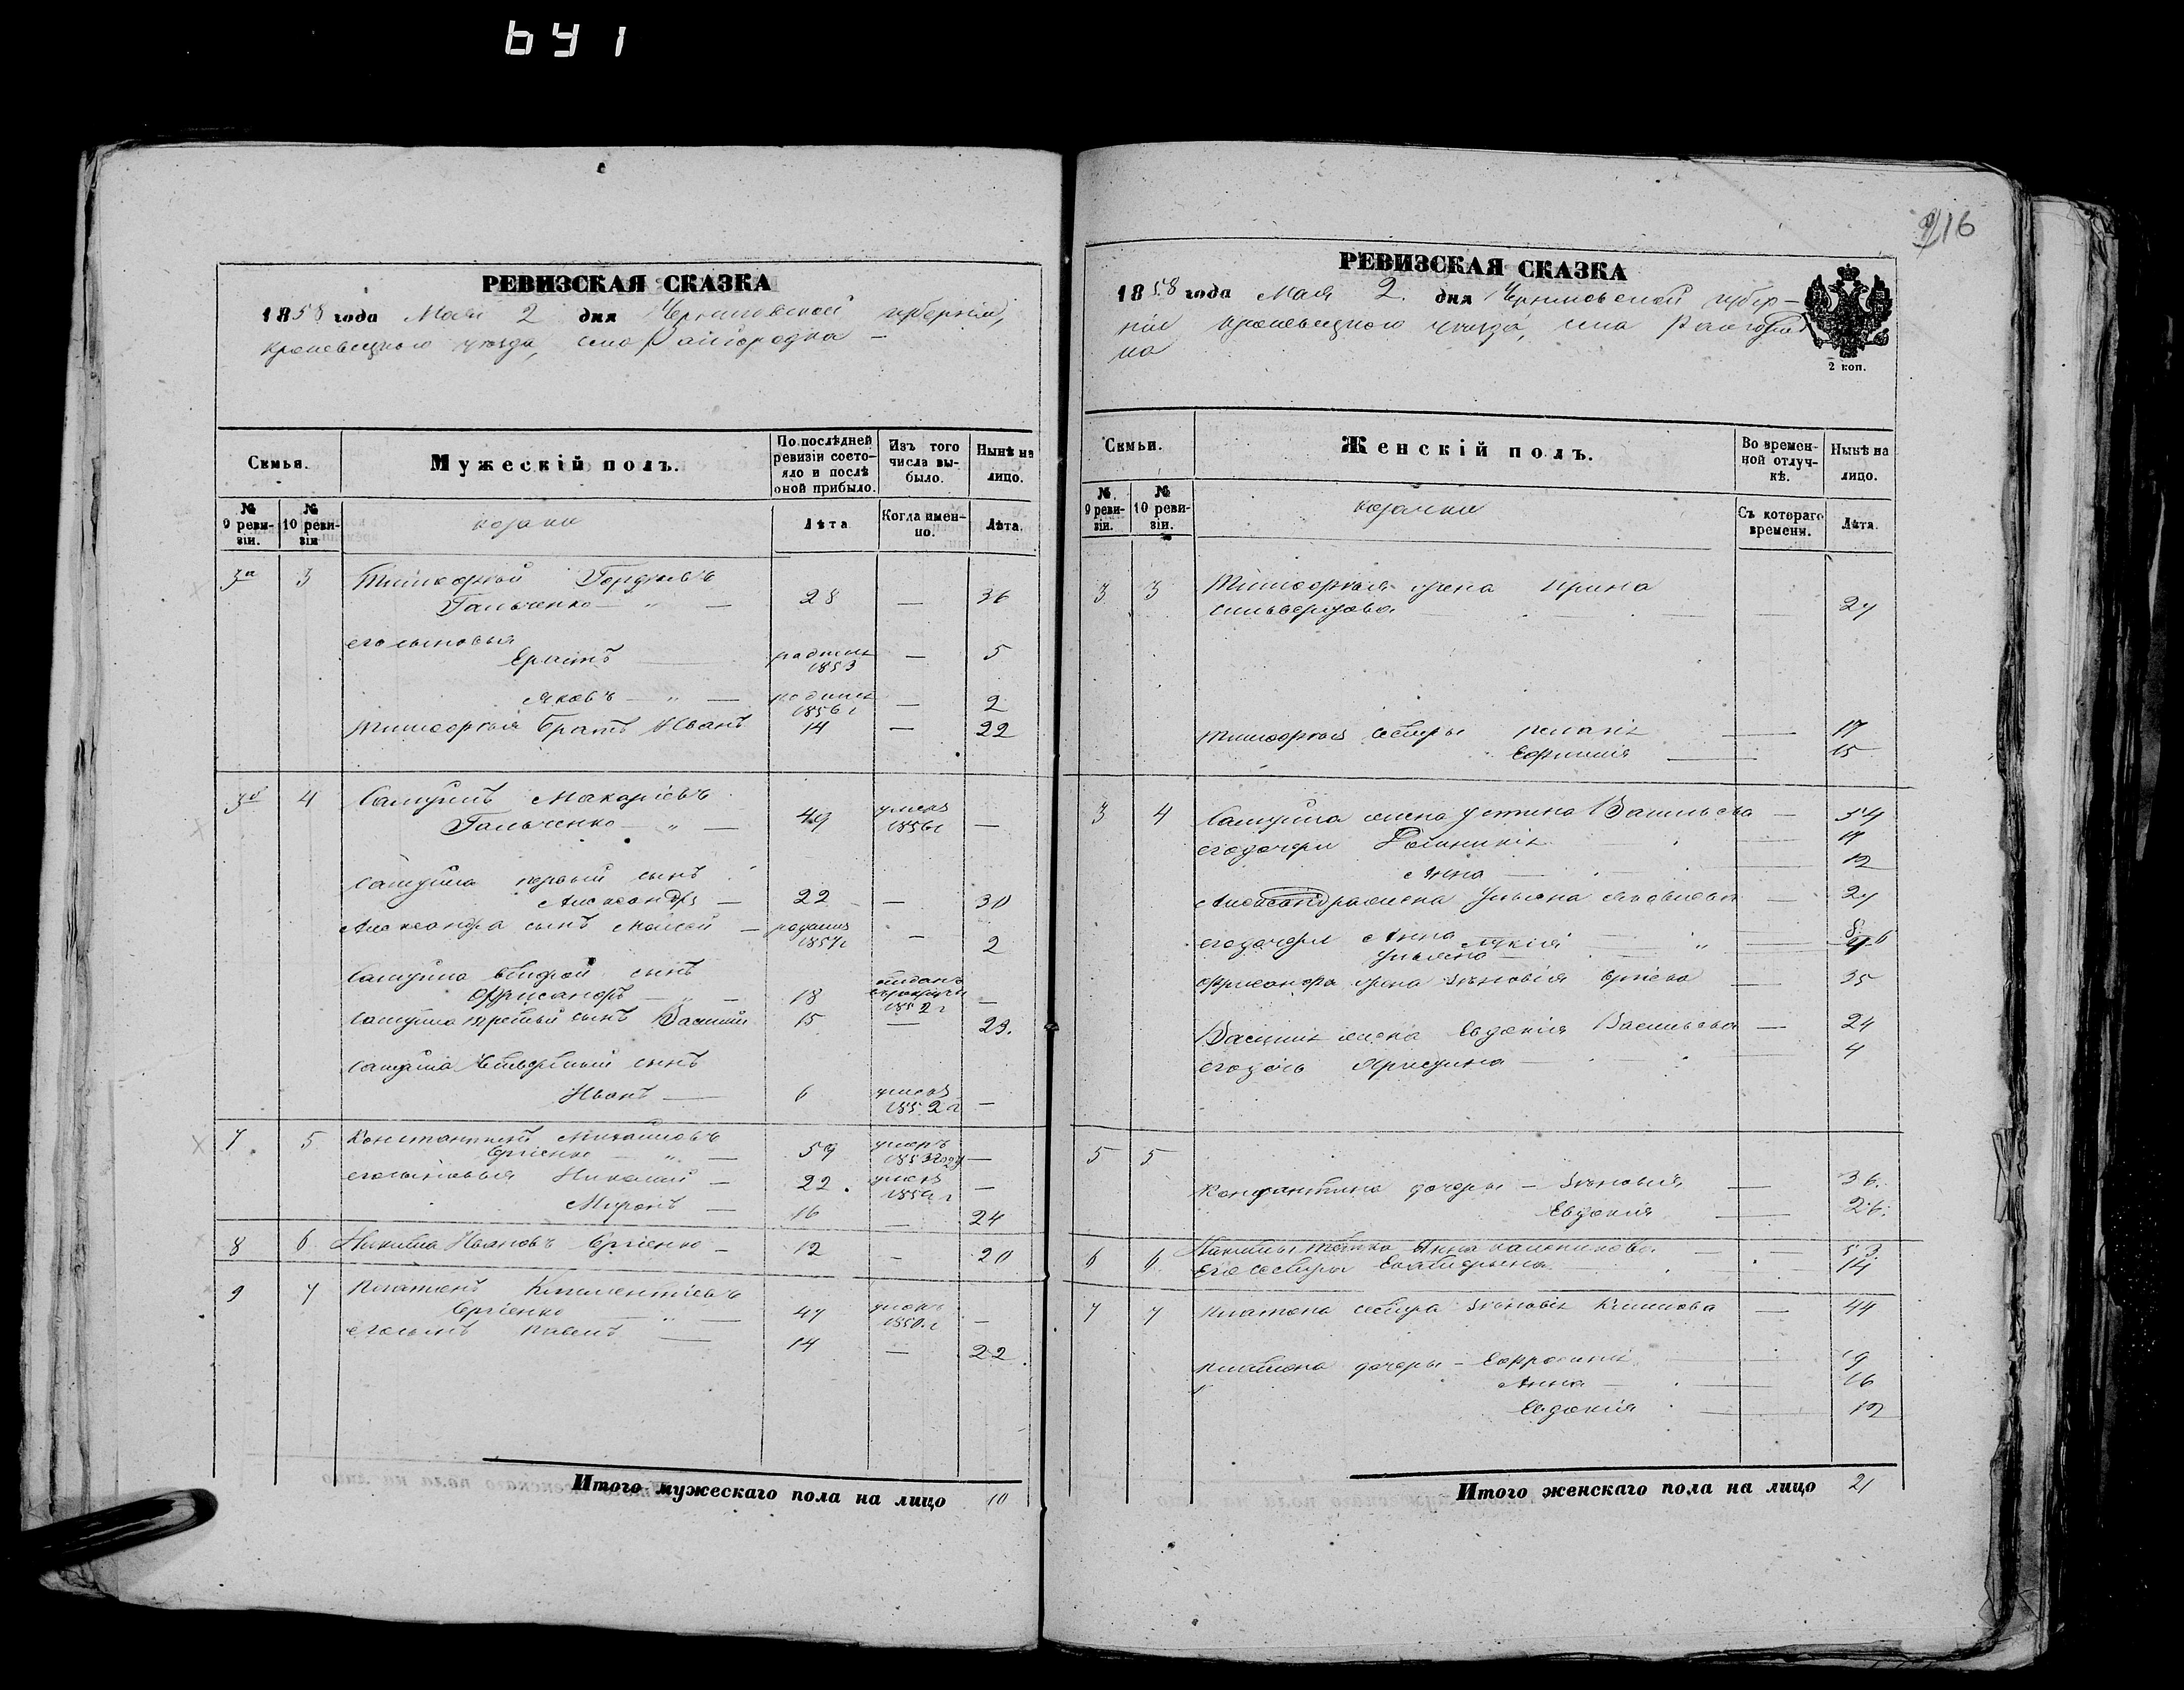 641
РЕВИЗСКАЯ СКАЗКА
1858 года Мая 2 дня Черниговской губерніи,
Кролевецкого уезда, села Райгородка —
Семьи.
Мужескій полъ.
По послѣдней ревизіи состо-
яло и послѣ
оной прибыло.
Изъ того
числа вы-
было.
Нынѣ на
лицо.
№
9 реви-
зіи.
№
10 реви-
зіи
козаки
Лѣта
Когда имен-
но.
Лѣта.
3а 3 Тимофей Гордіевъ
Гальченко — " — 28 — 36
его сыновья
Ерастъ — родился 1853 — 5
Яковъ — " — родился 1856 г — 2
Тимофея братъ Иванъ 14 — 22
3б 4 Самуилъ Макаріевъ
Гальченко — " — 49 умеръ 1856 г —
Самуила первый сынъ
Александръ — 22 — 30
Александра сынъ Моисей — родился — 2
Самуила второй сынъ
18 1852 г —
Самуила третий сынъ Василий 15 — 23.
Самуила четвертый сынъ
Иванъ — 6 умеръ 1852 г —
7 5 Константинъ Михайловъ
Сергіенко — " — 59 умеръ 1853 году —
его сыновья Николай — 22. умеръ —
Миронъ — 16 — 24
8 6 Никита Ивановъ Сергіенко — 12 — 20
9 7 Платонъ Климентіевъ
Сергіенко — " — 47 умеръ 1850 г —
его сынъ Павелъ — 14 — 22.
Итого мужескаго пола на лицо 10
216
РЕВИЗСКАЯ СКАЗКА
1858 года Мая 2. дня Черниговской губер—
ніи Кролевецкого уезда, села Райгород
ка
2 коп.
Семьи.
Женскій полъ.
Во времен-
ной отлуч-
кѣ.
Нынѣ на
лицо.
№
9 реви-
зіи.
№
10 реви-
зіи.
козачки
Съ котораго
времени.
Лѣта.
3 3 Тимофея жена Ирина
Сильвестрова — 27
Тимофея сестры — 17
Ефимія — 15
3 4 Самуила жена Устина Васильева — 54
его дочери 17
Анна — 12
Александра жена Ульяна — 27
его дочери Анна — 8
Ульяна
жена Зѣновія — 35
Василія жена Евдокія Васильева — 24
его дочь — 4
5 5
Константина дочери — Зѣновія — 36.
Евдокія — 26.
6 6 Никиты матка Анна 53.
Его сестра Екатерина 14
7 7 Платона сестра Зѣновія Климова — 44
Платона дочери — Ефросинія 19
Анна — 16
Евдокія — 12
Итого женскаго пола на лицо 21